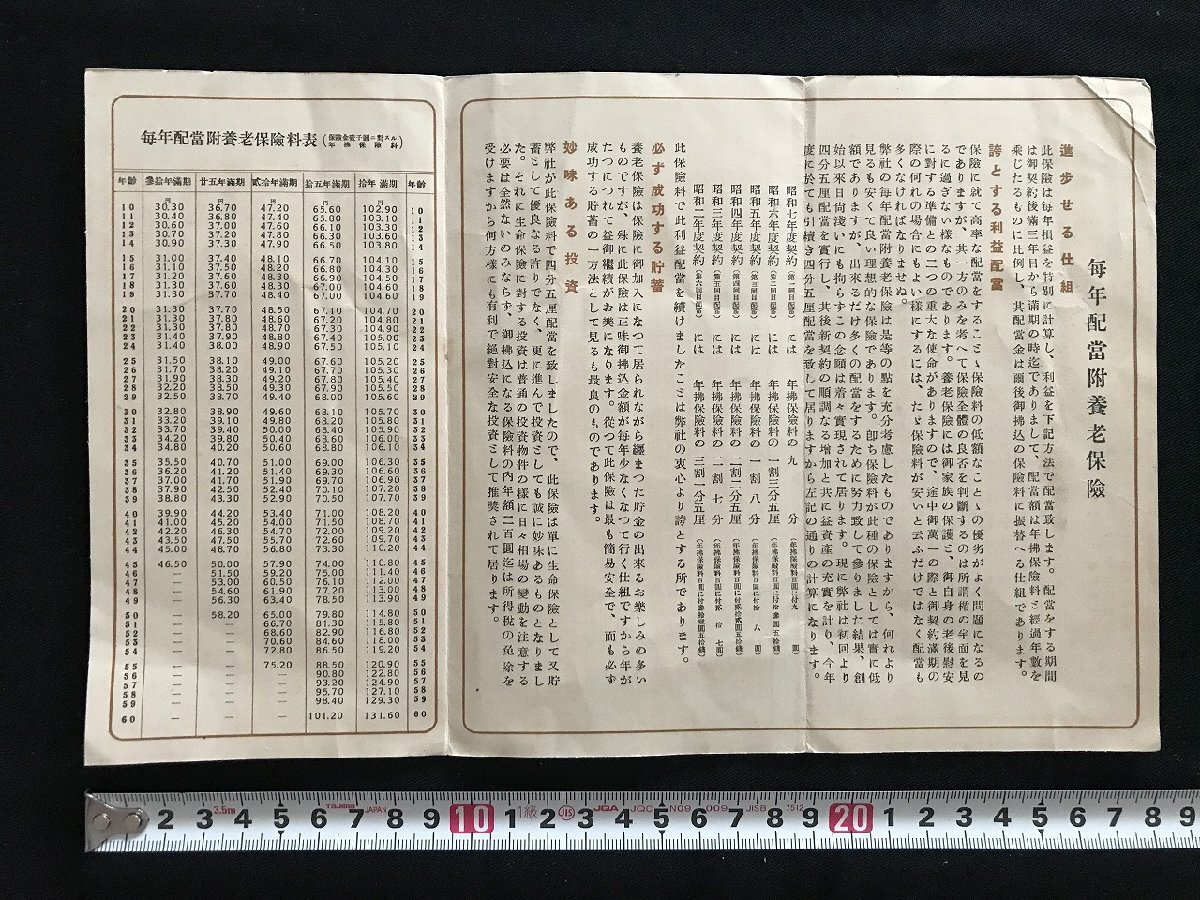 毎年配當附養老保險
進步せる仕組
此保險は毎年損益を特別に計算し、利益を下記方法で配當致します。配當をする期間
は御契約後滿三年目から滿期の時迄でありまして、配當額は年拂保險料ミ經過年數を
乘じたるものに比例し、其配當金は爾後御拂込の保險料に振替へる仕組であります。
誇とする利益配當
保險に就て高率な配當をすることゝ保險料の低額なことゝの優劣がよく問題になるの
でありますが、共一方のみを考へて保險全體の良否を判斷するのは所謂楯の半面を見
るに過ぎない樣なものであります。養老保險には御家族の保護ミ、御自身の老後慰安
に對する準備との二つの重大な使命がありますので、途中御萬一の際と御契約滿期の
際の何れの場合にもよい樣にするには、たゞ保險料が安いと云ふだけではなく配當も
多くなければなりませぬ。
弊社の毎年配當附養老保險は是等の點を充分考慮したものでありますから、何れより
見るも安くて良い理想的な保險であります。卽ち保險料が此種の保險としては實に低
額でありますが、出來るだけ多くの配當をするために努力致して參りました結果、創
始以來日尙淺いにも拘らずこの念願は着々實現されて居ります。現に弊社は初回より
四分五厘配當を實行し、其後新契約の順調なる增加と共に益資產の充實を計り、今年
度に於ても引續き四分五厘配當を致して居りますから左記の通りの計算になります。
昭和七年度契約(第一回目配當)には 年拂保險料の九分
昭和六年度契約(第二回目配當)には 年拂保險料の一割三分五厘
昭和五年度契約(第三回目配當)には 年拂保險料の一割八分
昭和四年度契約(第四回目配當)には 年拂保險料の二割二分五厘
昭和三年度契約(第五回目配當)には 年拂保險料の二割七分
昭和二年度契約(第六回目配當)には 年拂保險料の三割一分五厘
此保險料で此利益配當を續けましたことは弊社の衷心より誇とする所であります。
必ず成功する貯蓄
養老保險は保險に御加入になつて居られながら纒まつた貯金の出來るお樂しみの多い
ものですが、殊に此保險は正味御拂込金額が毎年少なくなつて行く仕組ですから年が
たつにつれて益御繼續がお樂になります。從つて此保險は最も簡易安全で、而も必ず
成功する貯蓄の一方法として見るも最良のものであります。
妙味ある投資
弊社が此保險料で四分五厘配當を致しましたので、此保險は單に生命保險として又貯
蓄として優良なる許りでなく、更に進んで投資としても誠に妙味あるものとなりまし
た。それに生命保險に對する投資は普通の投資物件の樣に日々相場の變動を注意する
必要は全然ないのみならず、御拂込になる保險料の內年額二百圓迄は所得稅の免除を
受けますから何方樣にも有利で絕對安全な投資として推奬されて居ります。
毎年配當附養老保險料表(保險金壹千圓ニ對スル年拂保險料)
年齡 參拾年滿期 廿五年滿期 貳拾年滿期 拾五年滿期 拾年滿期 年齡
10 30.30 36.70 47.20 65.60 102.90 10
11 30.40 36.80 47.40 66.00 103.10 11
12 30.60 37.00 47.60 66.10 103.30 12
13 30.70 37.20 47.60 66.30 103.60 13
14 30.90 37.30 47.90 66.50 103.80 14
15 31.00 37.40 48.10 66.70 104.10 15
16 31.10 37.50 48.20 66.80 104.30 16
17 31.20 37.60 48.30 66.90 104.60 17
18 31.30 37.60 48.30 67.00 104.60 18
19 31.30 37.70 48.40 67.00 104.60 19
20 31.30 37.70 48.50 67.10 104.70 20
21 31.30 37.80 48.60 67.20 104.80 21
22 31.30 37.80 48.70 67.30 104.90 22
23 31.40 37.90 48.80 67.40 105.00 23
24 31.40 38.00 48.90 67.50 105.10 24
25 31.50 38.10 49.00 67.60 105.20 25
26 31.70 38.20 49.10 67.70 105.30 26
27 31.90 38.30 49.20 67.80 105.40 27
28 32.20 38.50 49.30 67.90 105.50 28
29 32.50 38.70 49.40 68.00 105.60 29
30 32.80 38.90 49.60 68.10 105.70 30
31 33.20 39.10 49.80 68.20 105.80 31
32 33.70 39.40 50.00 68.40 105.90 32
33 34.20 39.80 50.40 68.60 106.00 33
34 34.80 40.20 50.60 68.80 106.10 34
35 35.50 40.70 51.00 69.00 106.30 35
36 36.20 41.20 51.40 69.30 106.60 36
37 37.00 41.70 51.90 69.70 106.90 37
38 37.90 42.50 52.40 70.10 107.20 38
39 38.80 43.30 52.90 70.50 107.70 39
40 39.90 44.20 53.40 71.00 108.20 40
41 41.00 45.20 54.00 71.50 108.70 41
42 42.20 46.30 54.70 72.00 109.20 42
43 43.50 47.50 55.70 72.60 109.70 43
44 45.00 48.70 56.80 73.30 110.20 44
45 46.50 50.00 57.90 74.00 110.80 45
46 — 51.50 59.20 75.00 111.40 46
47 — 53.00 60.50 76.10 112.00 47
48 — 54.60 61.90 77.20 113.00 48
49 — 56.30 63.40 78.50 113.90 49
50 — 58.20 65.00 79.80 114.80 50
51 — — 66.70 81.30 115.80 51
52 — — 68.60 82.90 116.80 52
53 — — 70.60 84.60 118.00 53
54 — — 72.80 86.50 119.20 54
55 — — 75.20 88.50 120.90 55
56 — — — 90.80 122.80 56
57 — — — 93.20 124.90 57
58 — — — 95.70 127.10 58
59 — — — 98.40 129.30 59
60 — — — 101.20 131.60 60
3.5m Tajima JAPAN 1級 JIS JQA JISB 7512
2 3 4 5 6 7 8 9 10 1 2 3 4 5 6 7 8 9 20 1 2 3 4 5 6 7 8 9